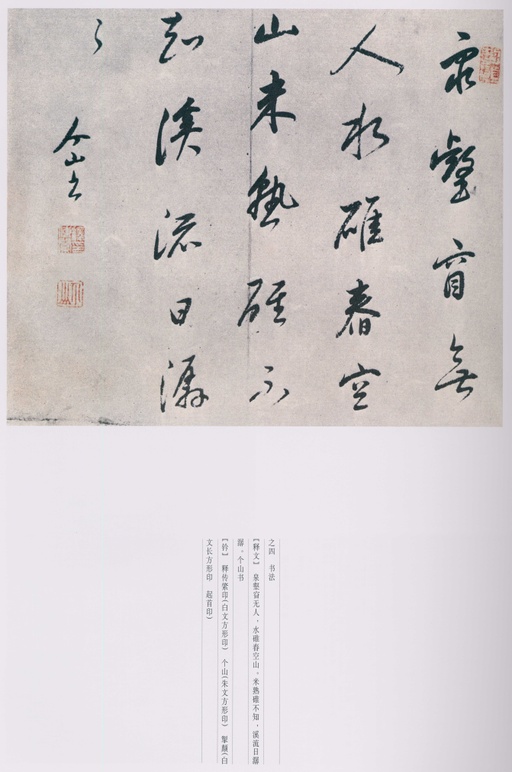 泉壑窅無
人水碓舂空
山米熟碓不
知溪流日潺
〻
个山書
之四 书法
【释文】 泉壑窅无人,水碓舂空山。米熟碓不知,溪流日潺
潺。个山书
【钤】 释传綮印(白文方形印) 个山(朱文方形印) 掣颠(白
文长方形印 起首印)